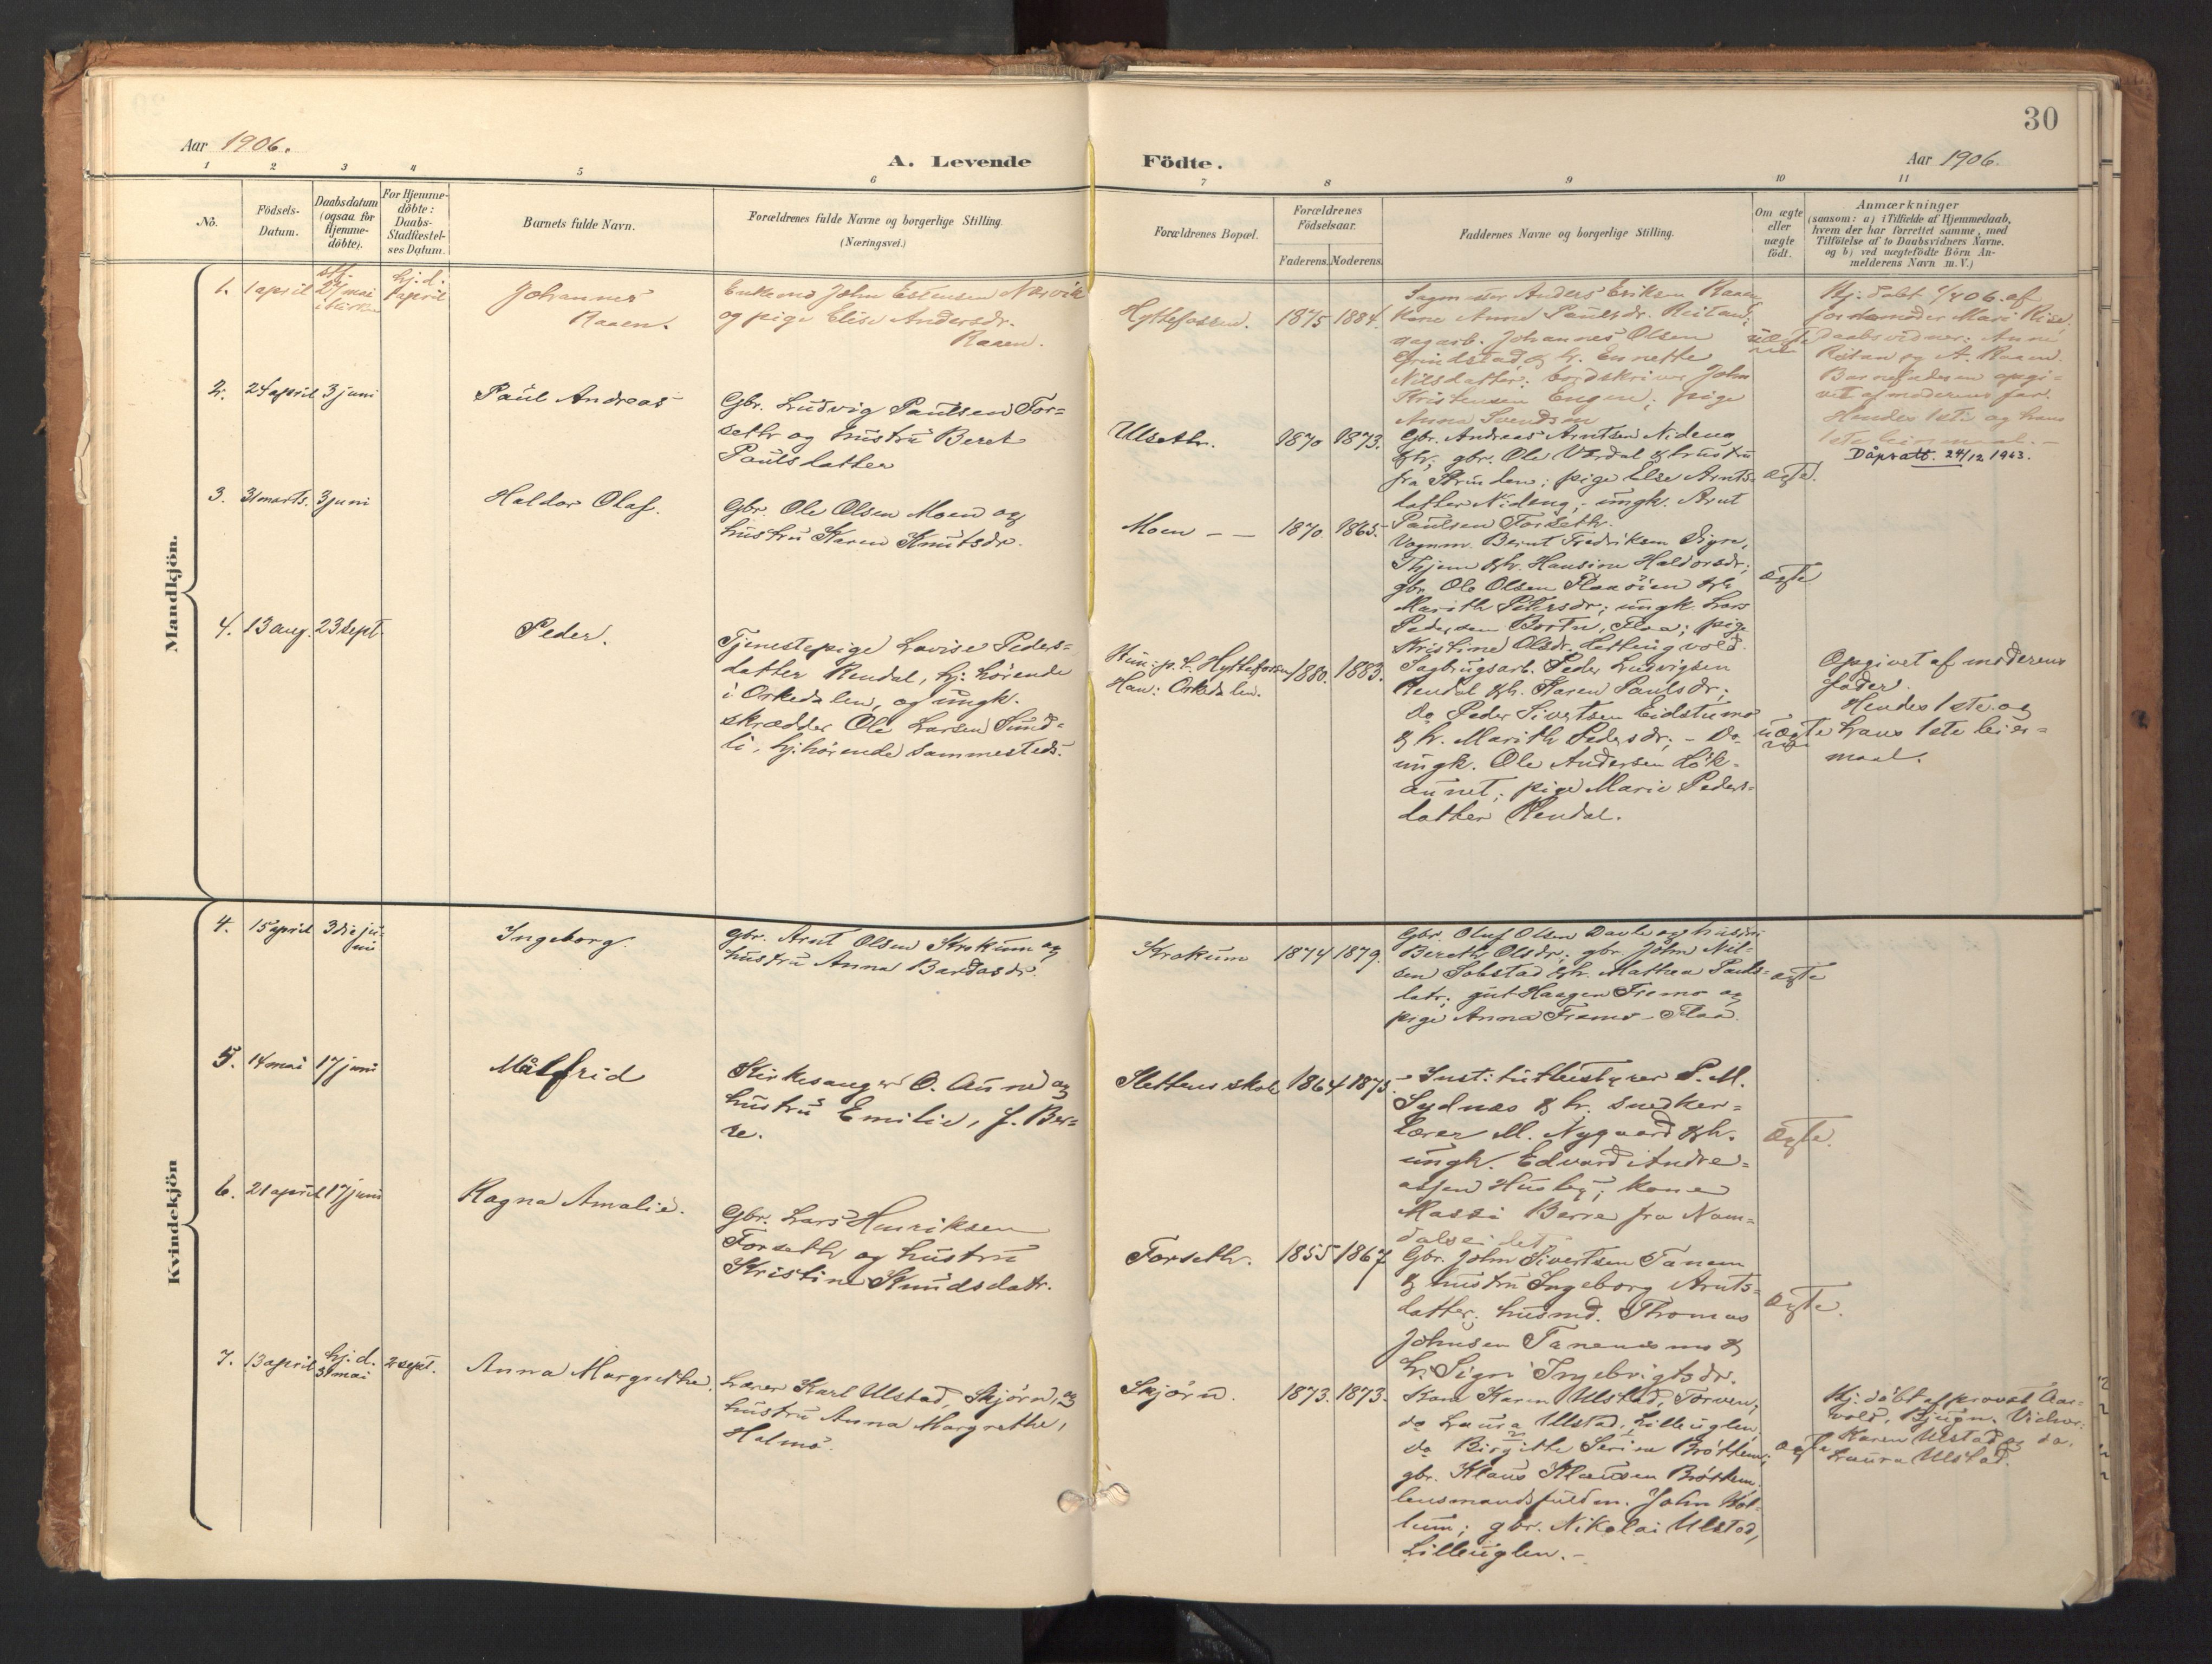 30
Aar 1906.
A. Levende
Födte.
Aar 1906.
1 2 3 4 5 6 7 8 9 10 11
No.
Födsels-
Datum.
Daabsdatum
(ogsaa for
Hjemme-
döbte).
For Hjemme-
döbte:
Daabs-
Stadfæstel-
ses Datum.
Barnets fulde Navn.
Forældrenes fulde Navne og borgerlige Stilling.
(Næringsvei.)
Forældrenes Bopæl.
Forældrenes
Födselsaar.
Faderens.
Moderens.
Faddernes Navne og borgerlige Stilling.
Om ægte
eller
uægte
födt.
Anmærkninger
(saasom: a) i Tilfælde af Hjemmedaab,
hvem der har forrettet samme, med
Tilföielse af to Daabsvidners Navne.
og b) ved uægtefödte Börn An-
melderens Navn m. V.)
Mandkjön.
1. 1 april
stf.
27 mai
i kirken
hj. d.
1 april
Johannes
Raaen.
Enkemd John Estensen Næsvik
og pige Elise Andersdr.
Raaen.
Hyttefossen. 1875 1884.
Anders Eriksen Raaen,
Kone Anne Paulsdr. Reitan;
Johannes Olsen
Grindstad & h. Ennette
Nilsdatter; bordskriver John
Kristensen Engen; pige
Anna Svendsen
uægte
Hj: döbt 1/4 06. af
jordemoder Mari Rise,
Daabsvidner: Anne
Reitan og A. Raaen.
Barnefaderen opgi-
vet af moderens far.
Hendes 1ste og hans
1ste leiermaal.-
Dåpsatt. 24/12 1943.
2. 24 april 3 juni
Paul Andreas
Gbr. Ludvig Paulsen For-
seth og hustru Beret
Paulsdatter
Ulseth. 1870 1873.
Gbr. Andreas Arntsen Nideng
&h; gbr. Ole Værdal & hustru
fra Strinden; pige Else Arnts-
datter Nideng; ungk. Arnt
Paulsen Forseth.
ægte.
3. 31 marts. 3 juni
Haldor Olaf.
Gbr. Ole Olsen Moen og
hustru Karen Knutsdr.
Moen - - 1870. 1865.
Vognm. Bernt Fredriksen Digre,
Thjem &h. Hansine Haldorsdr;
gbr. Ole Olsen Flaaöien &h
Marith Petersdr; ungk. Lars
Pedersen Borten, Flaa; pige
Kristine Olsdr. Hettingvold.
ægte
4. 13 aug. 23 sept.
Peder.
Tjenestepige Lovise Peders-
datter Rendal, hj: hörende
i Orkedalen, og ungk.
skrædder Ole Larsen Sund-
li, hj.hörende sammesteds.
Hun: p.t. Hyttefossen
Han: Orkedalen.
1880. 1883.
Sagbrugsarb. Peder Ludvigsen
Rendal &h. Karen Paulsdr;
do Peder Sivertsen Eidstumo
& h. Marith Pedersdr; - Do
ungk. Ole Andersen Hök-
aunet; pige Marie Peders-
datter Rendal.
uægte
Opgivet af moderens
fader.
Hendes 1ste og
hans 1ste leier-
maal.
Kvindekjön
4. 15 april 3die ju-
ni
Ingeborg.
Gbr. Arnt Olsen Krokum og
hustru Anna Bardosdr.
Krokum 1874 1879.
Gbr. Oluf Olsen Davle og hustru
Bereth Olsdr; gbr. John Nil-
sen Sobstad &h. Mathea Pauls-
datr; gut Haagen Fremo og
pige Anna Fremo - Flaa.
ægte
5. 14 mai 17 juni
Målfrid
Kirkesanger O. Aune og
hustru Emilie, f. Ber-
re.
Slettens skole 1864 1873.
Institutbestyrer P. M.
Sydnes & h. snedker-
lærer M. Nygaard &h.
ungk. Edvard Andre-
assen Husby; kone
Massi Berre fra Nam-
dalseidet
ægte.
6. 21 april 17 juni
Ragna Amalie.
Gbr. Lars Henriksen
Forseth og hustru
Kristine Knudsdatr.
Forseth. 1855 1867
Gbr. John Sivertsen Tanem
& hustru Ingeborg Arnts-
datter; husmd. Thomas
Johnsen Tanemsmo &
h. Signi Ingebrigtsdr.
ægte.
7. 13 april
hj. d.
31 mai
2 sept.
Anna Margrethe.
Lærer Karl Ulstad, Skjörn, og
hustru Anna Margrethe,
Halmö.
Skjörn. 1873. 1873.
Kone Karen Ulstad, Torven;
do Laura Ulstad, Lilleuglen,
do Birgitte Serine Bröttem;
gbr. Klaus Klausen Bröttem,
lensmandsfuldm. John Köl-
lum; gbr. Nikolai Ulstad,
Lilleuglen.-
ægte
Hj: döbt af provst Aar-
vold, Bjugn. Vidner:
Karen Ulstad og do.
Laura Ulstad.